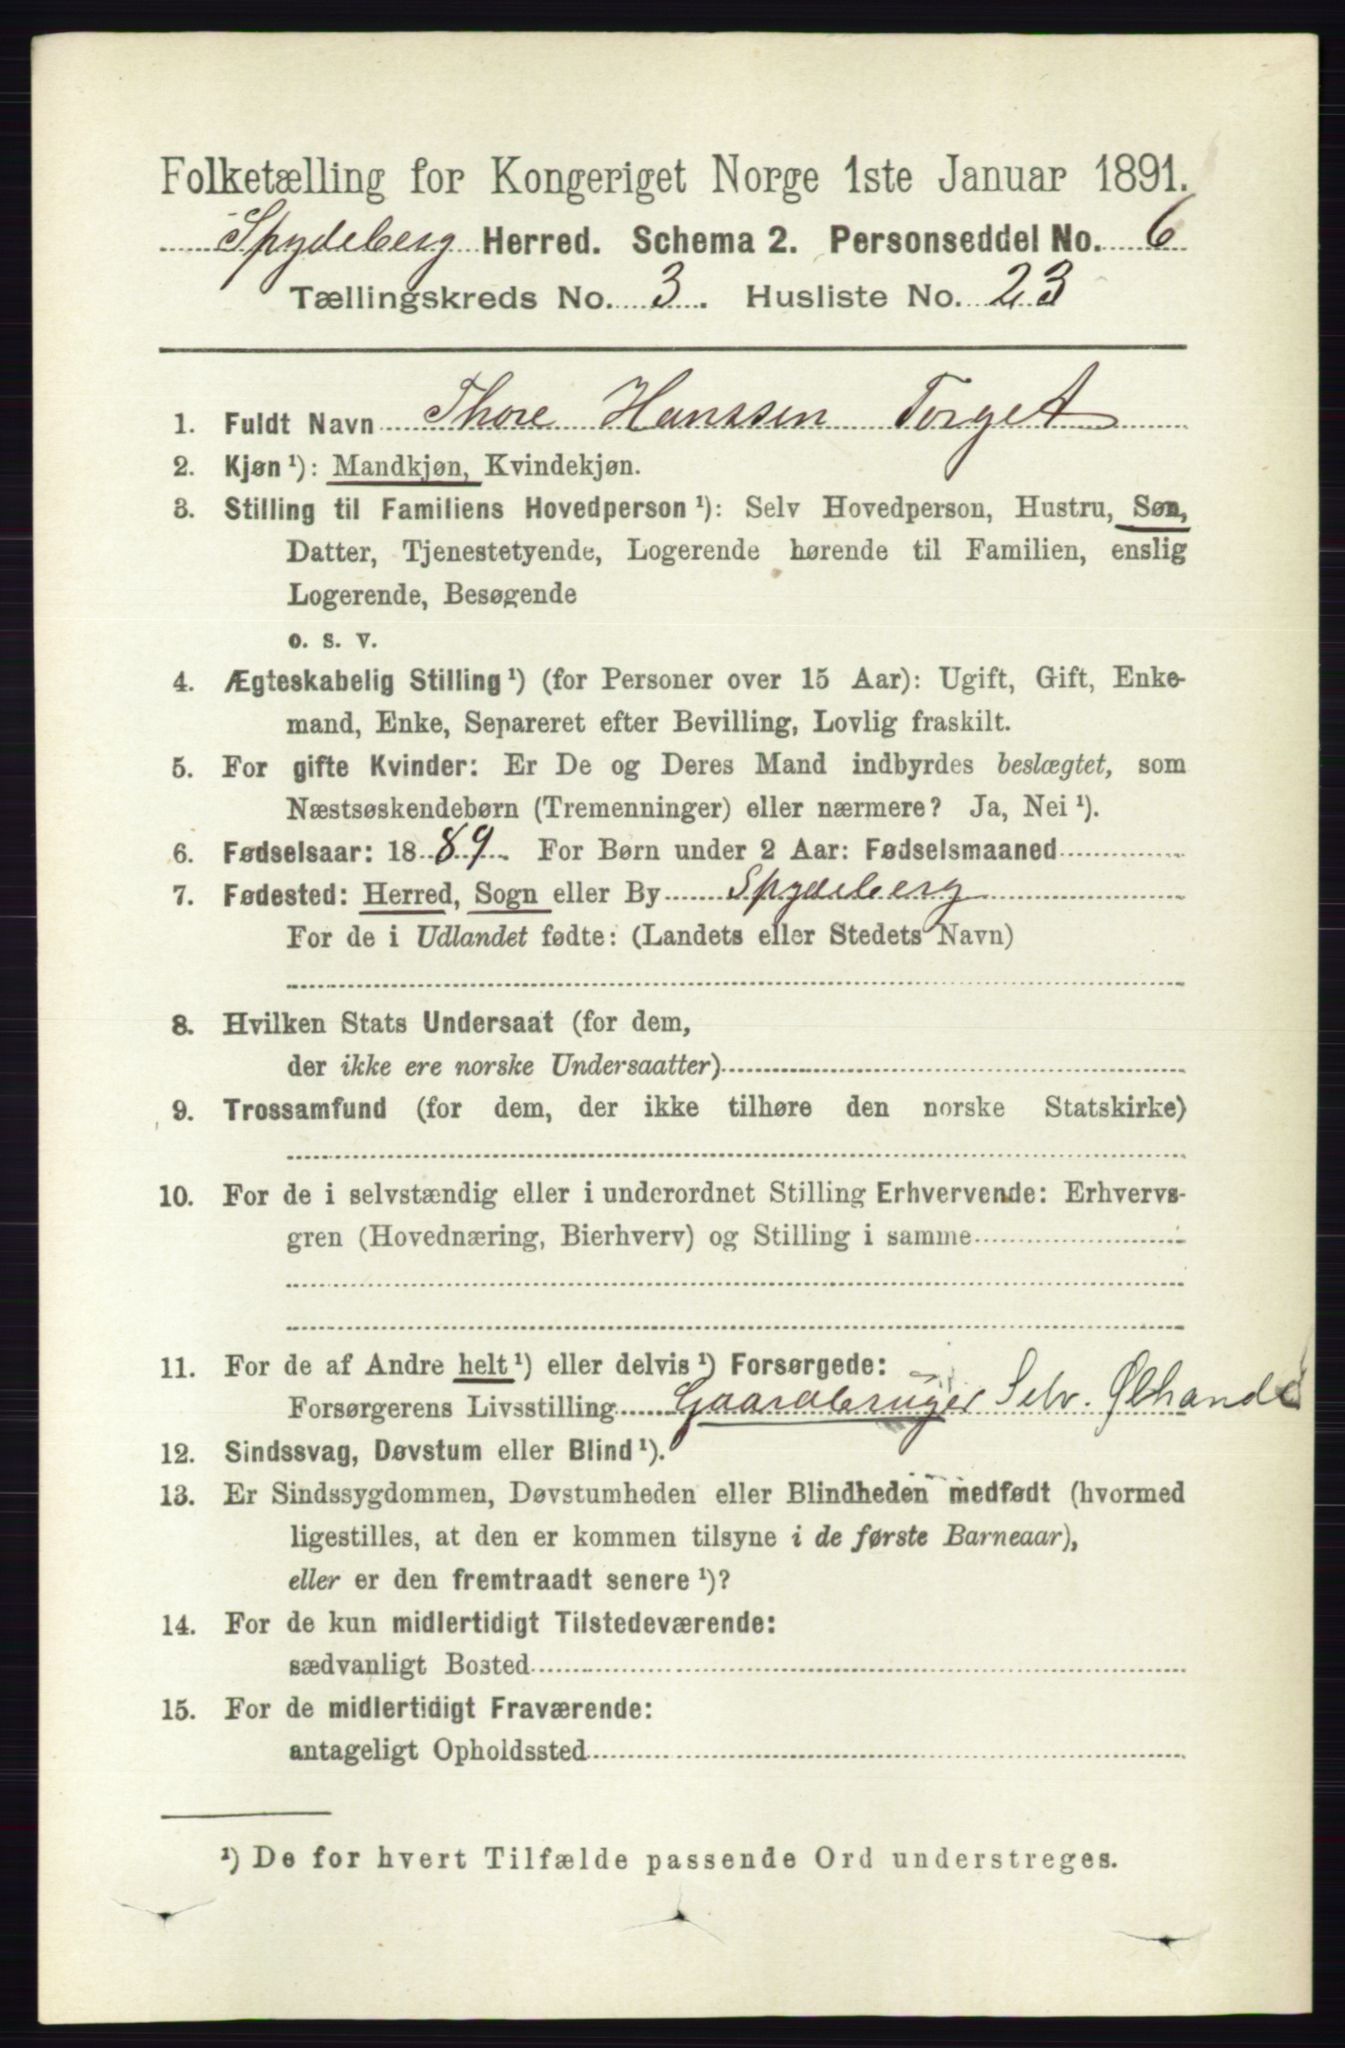 Folketælling for Kongeriget Norge 1ste Januar 1891.
Spydeberg Herred. Schema 2. Personseddel No. 6
Tællingskreds No. 3. Husliste No. 23
1. Fuldt Navn Thore Hanssen Torget
2. Kjøn ¹): Mandkjøn, Kvindekjøn.
3. Stilling til Familiens Hovedperson ¹): Selv Hovedperson, Hustru, Søn,
Datter, Tjenestetyende, Logerende hørende til Familien, enslig
Logerende, Besøgende
o. s. v.
4. Ægteskabelig Stilling ¹) (for Personer over 15 Aar): Ugift, Gift, Enke-
mand, Enke, Separeret efter Bevilling, Lovlig fraskilt.
5. For gifte Kvinder: Er De og Deres Mand indbyrdes beslægtet, som
Næstsøskendebørn (Tremenninger) eller nærmere? Ja, Nei ¹).
6. Fødselsaar: 1889. For Børn under 2 Aar: Fødselsmaaned
7. Fødested: Herred, Sogn eller By Spydeberg
For de i Udlandet fødte: (Landets eller Stedets Navn)
8. Hvilken Stats Undersaat (for dem,
der ikke ere norske Undersaatter)
9. Trossamfund (for dem, der ikke tilhøre den norske Statskirke)
10. For de i selvstændig eller i underordnet Stilling Erhvervende: Erhvervs-
gren (Hovednæring, Bierhverv) og Stilling i samme
11. For de af Andre helt ¹) eller delvis ¹) Forsørgede:
Forsørgerens Livsstilling Gaardbruger Selv. Ølhandl
12. Sindssvag, Døvstum eller Blind ¹).
13. Er Sindssygdommen, Døvstumheden eller Blindheden medfødt (hvormed
ligestilles, at den er kommen tilsyne i de første Barneaar),
eller er den fremtraadt senere ¹)?
14. For de kun midlertidigt Tilstedeværende:
sædvanligt Bosted
15. For de midlertidigt Fraværende:
antageligt Opholdssted
¹) De for hvert Tilfælde passende Ord understreges.